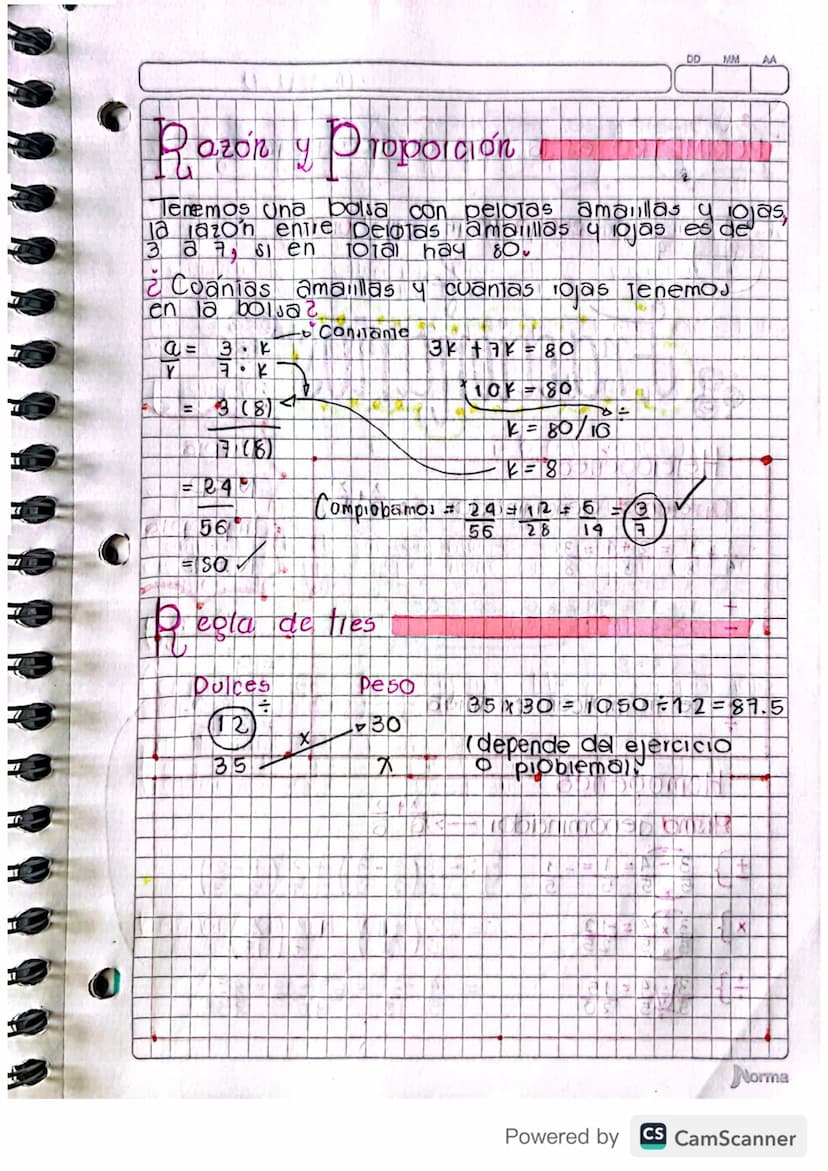 DD MM AA
Razón y Proporción
Tenemos una bolsa con pelotas amarillas y rojas,
la razón entre pelotas amarillas y rojas es de
3 a 7, si en total hay 80.
¿Cuántas amarillas y cuantas rojas tenemos
en la bolsa?
→ Constante
a/r = 3 · k / 7 · k
3k + 7k = 80
10k = 80
÷
= 3 (8) / 7 (8)
k = 80/10
k = 8
= 24 / 56
Comprobamos = 24/56 = 12/28 = 6/14 = 3/7 ✓
= 80 ✓
Regla de tres
Dulces Peso
÷
12 30
x
35 x
35 x 30 = 1050 ÷ 12 = 87.5
(depende del ejercicio
o problema).
Norma
Powered by CS CamScanner